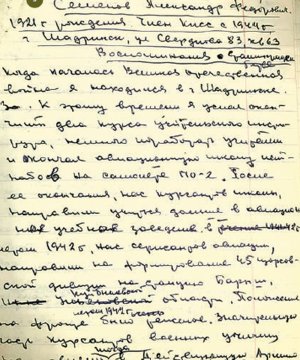 Семенов Александр Федорович.
1921 г рождения Член КПСС с 1944 г
г Шадринск, ул Свердлова 83, кв 63
Воспоминания о
Когда началась Великая Отечественная
война я находился в г Шадринске.
К этому времени я успел окон-
чить два курса учительского инсти-
тута, немного поработал учителем
и окончил авиационную школу пи-
лотов на самолете ПО-2. После
ее окончания, нас курсантов школы,
направили учиться далее в авиацион-
ное учебное заведение в
1942 г, нас сержантов авиации,
направили на формирование 45 стрелк-
овой дивизии на станцию Барыш,
области. Положение
на фронте было тяжелое. Значительную
часть курсантов военных училищ
в Действующую Армию